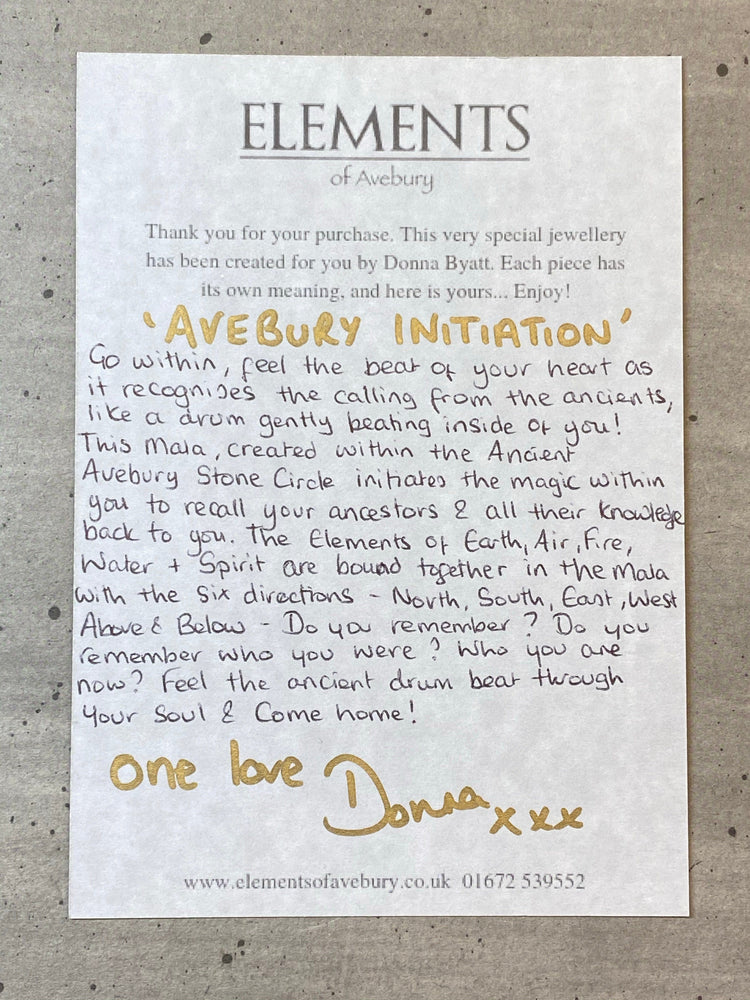 ELEMENTS
of Avebury
Thank you for your purchase. This very special jewellery
has been created for you by Donna Byatt. Each piece has
its own meaning, and here is yours... Enjoy!
'AVEBURY INITIATION'
Go within, feel the beat of your heart as
it recognises the calling from the ancients,
like a drum gently beating inside of you!
This Mala, created within the Ancient
Avebury Stone Circle initiates the magic within
you to recall your ancestors & all their knowledge
back to you. The Elements of Earth, Air, Fire,
Water + Spirit are bound together in the Mala
with the six directions - North, South, East, West
Above & Below - Do you remember? Do you
remember who you were? Who you are
now? Feel the ancient drum beat through
your Soul & Come home!
One love Donna xxx
www.elementsofavebury.co.uk 01672 539552